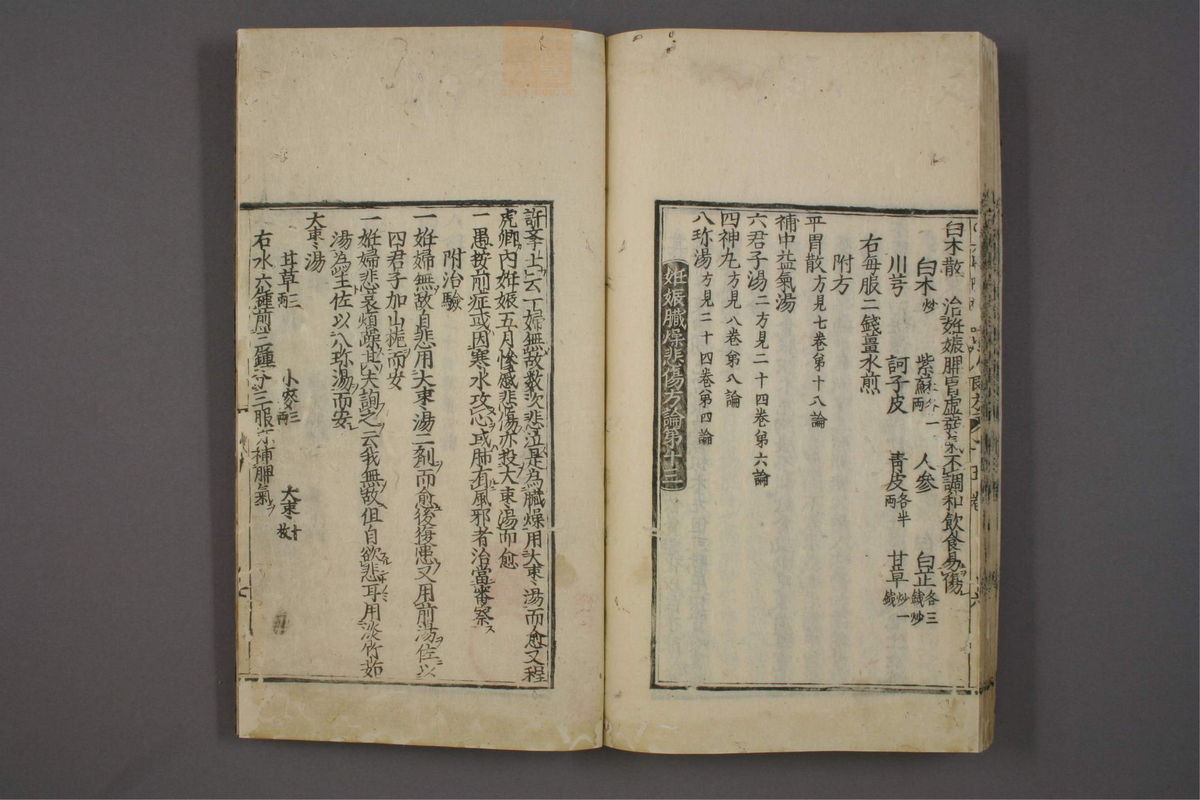 白朮散　治姙娠脾胃虛弱氣不調和飲食易傷
白朮炒　紫蘇各一兩　人參　白芷各三錢炒
川芎　訶子皮　青皮各半兩　甘草炒一錢
右每服二錢薑水煎
附方
平胃散方見七卷第十八論
補中益氣湯
六君子湯二方見二十四卷第六論
四神丸方見八卷第八論
八珎湯方見二十四卷第四論
妊娠臟燥悲傷方論第十三
許學士云一婦無故数次悲泣是為臟燥用大棗湯而愈又程
虎卿内妊娠五月慘慼悲傷亦投大棗湯而愈
一愚按前症或因寒水攻心或肺有風邪者治當審察
附治驗
一姙婦無故自悲用大棗湯二剤而愈後復患又用前湯佐以
四君子加山梔而安
一姙婦悲哀煩躁其夫詢之云我無故但自欲悲耳用淡竹茹
湯為主佐以八珎湯而安
大棗湯
甘草三兩　小麥三兩　大棗十枚
右水六鍾煎三鍾分三服亦補脾氣